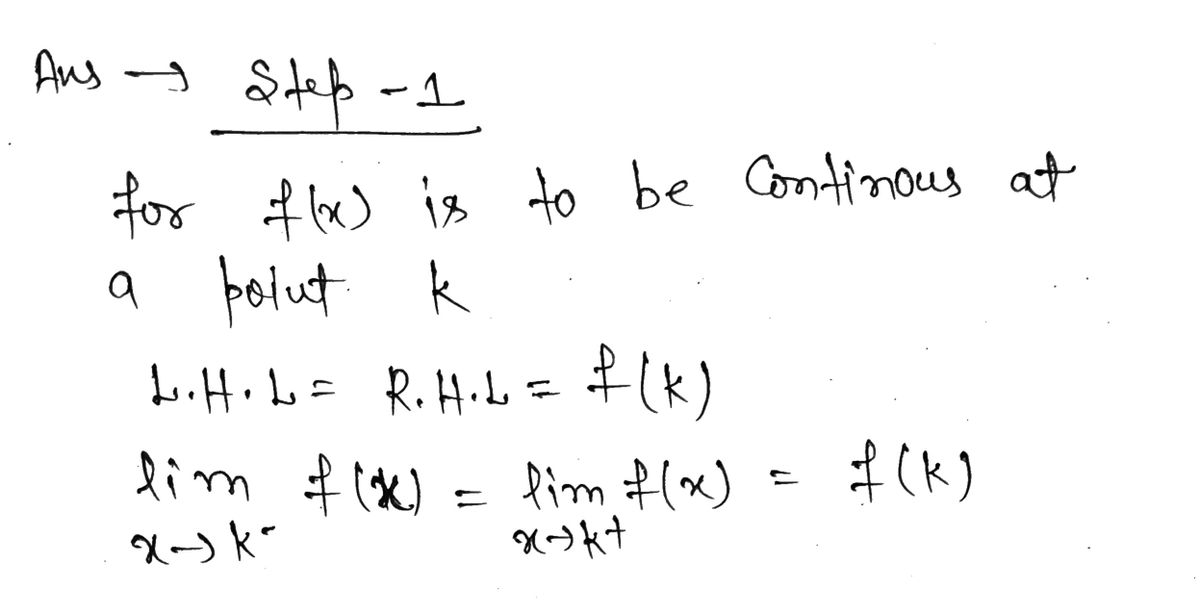 Ans → Step - 1
for f(x) is to be Continous at
a point k
L.H.L = R.H.L = f(k)
lim f(x) = lim f(x) = f(k)
x→k⁻ x→k+